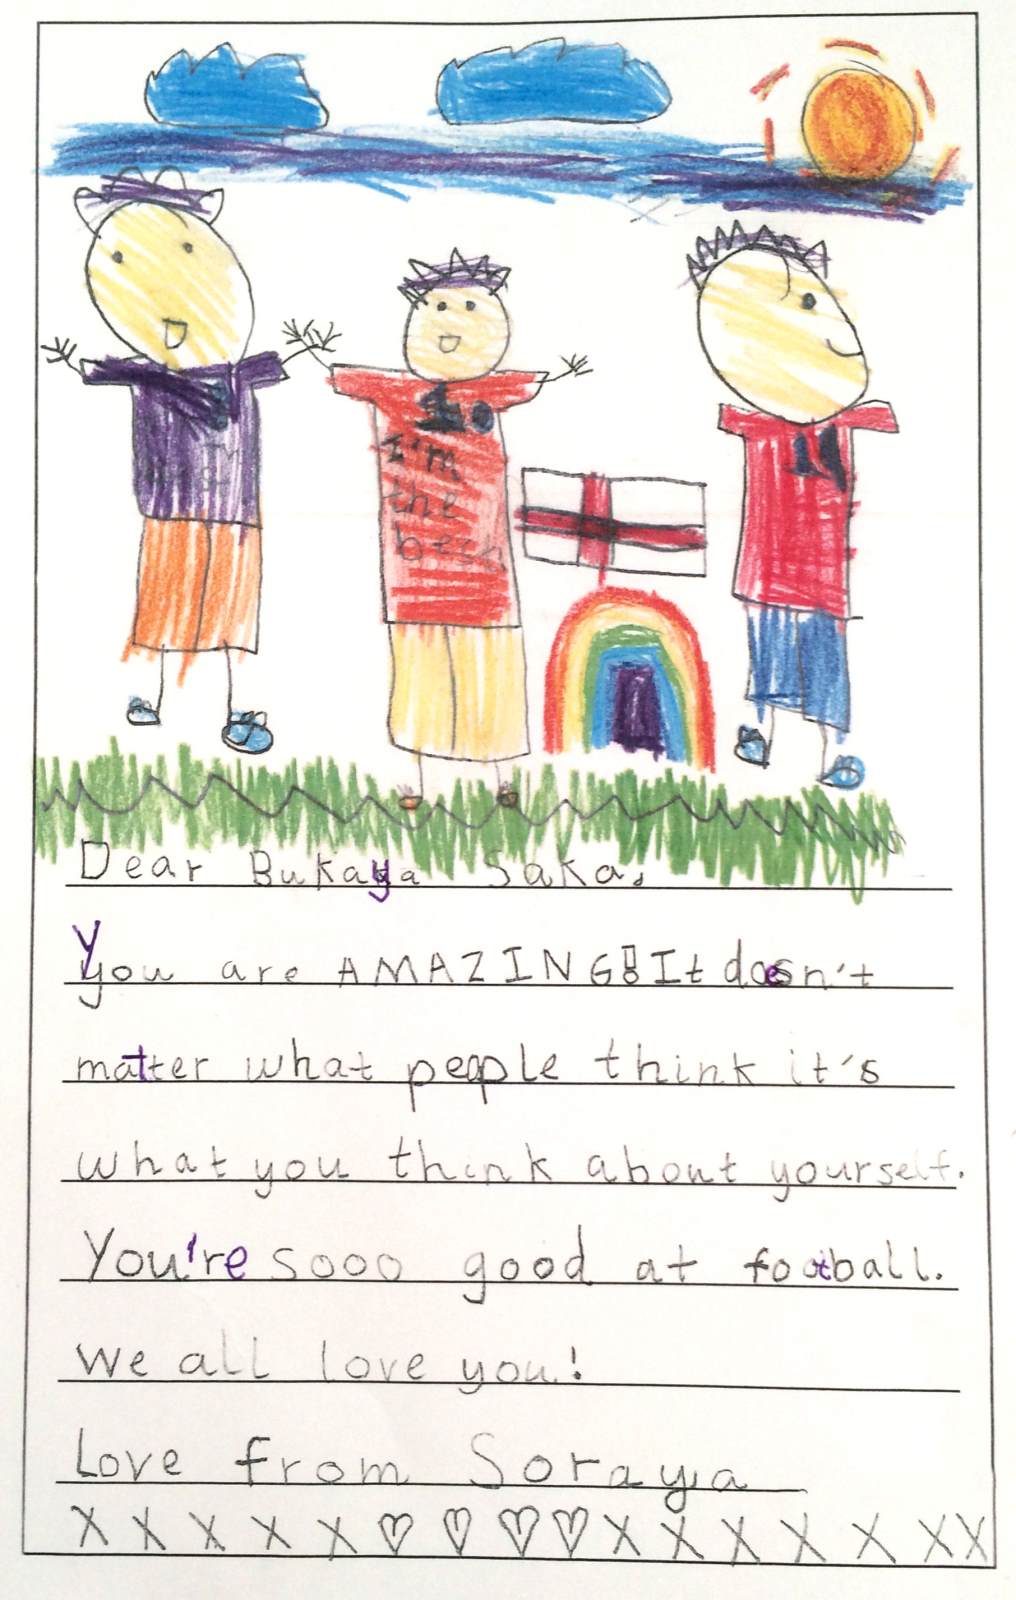 I'm
the
best
Dear Bukaya Saka,
You are AMAZING! It doesn't
matter what people think it's
what you think about yourself.
You're sooo good at football.
We all love you!
Love from Soraya
X X X X X ♡ ♡ ♡ ♡ X X X X X X X